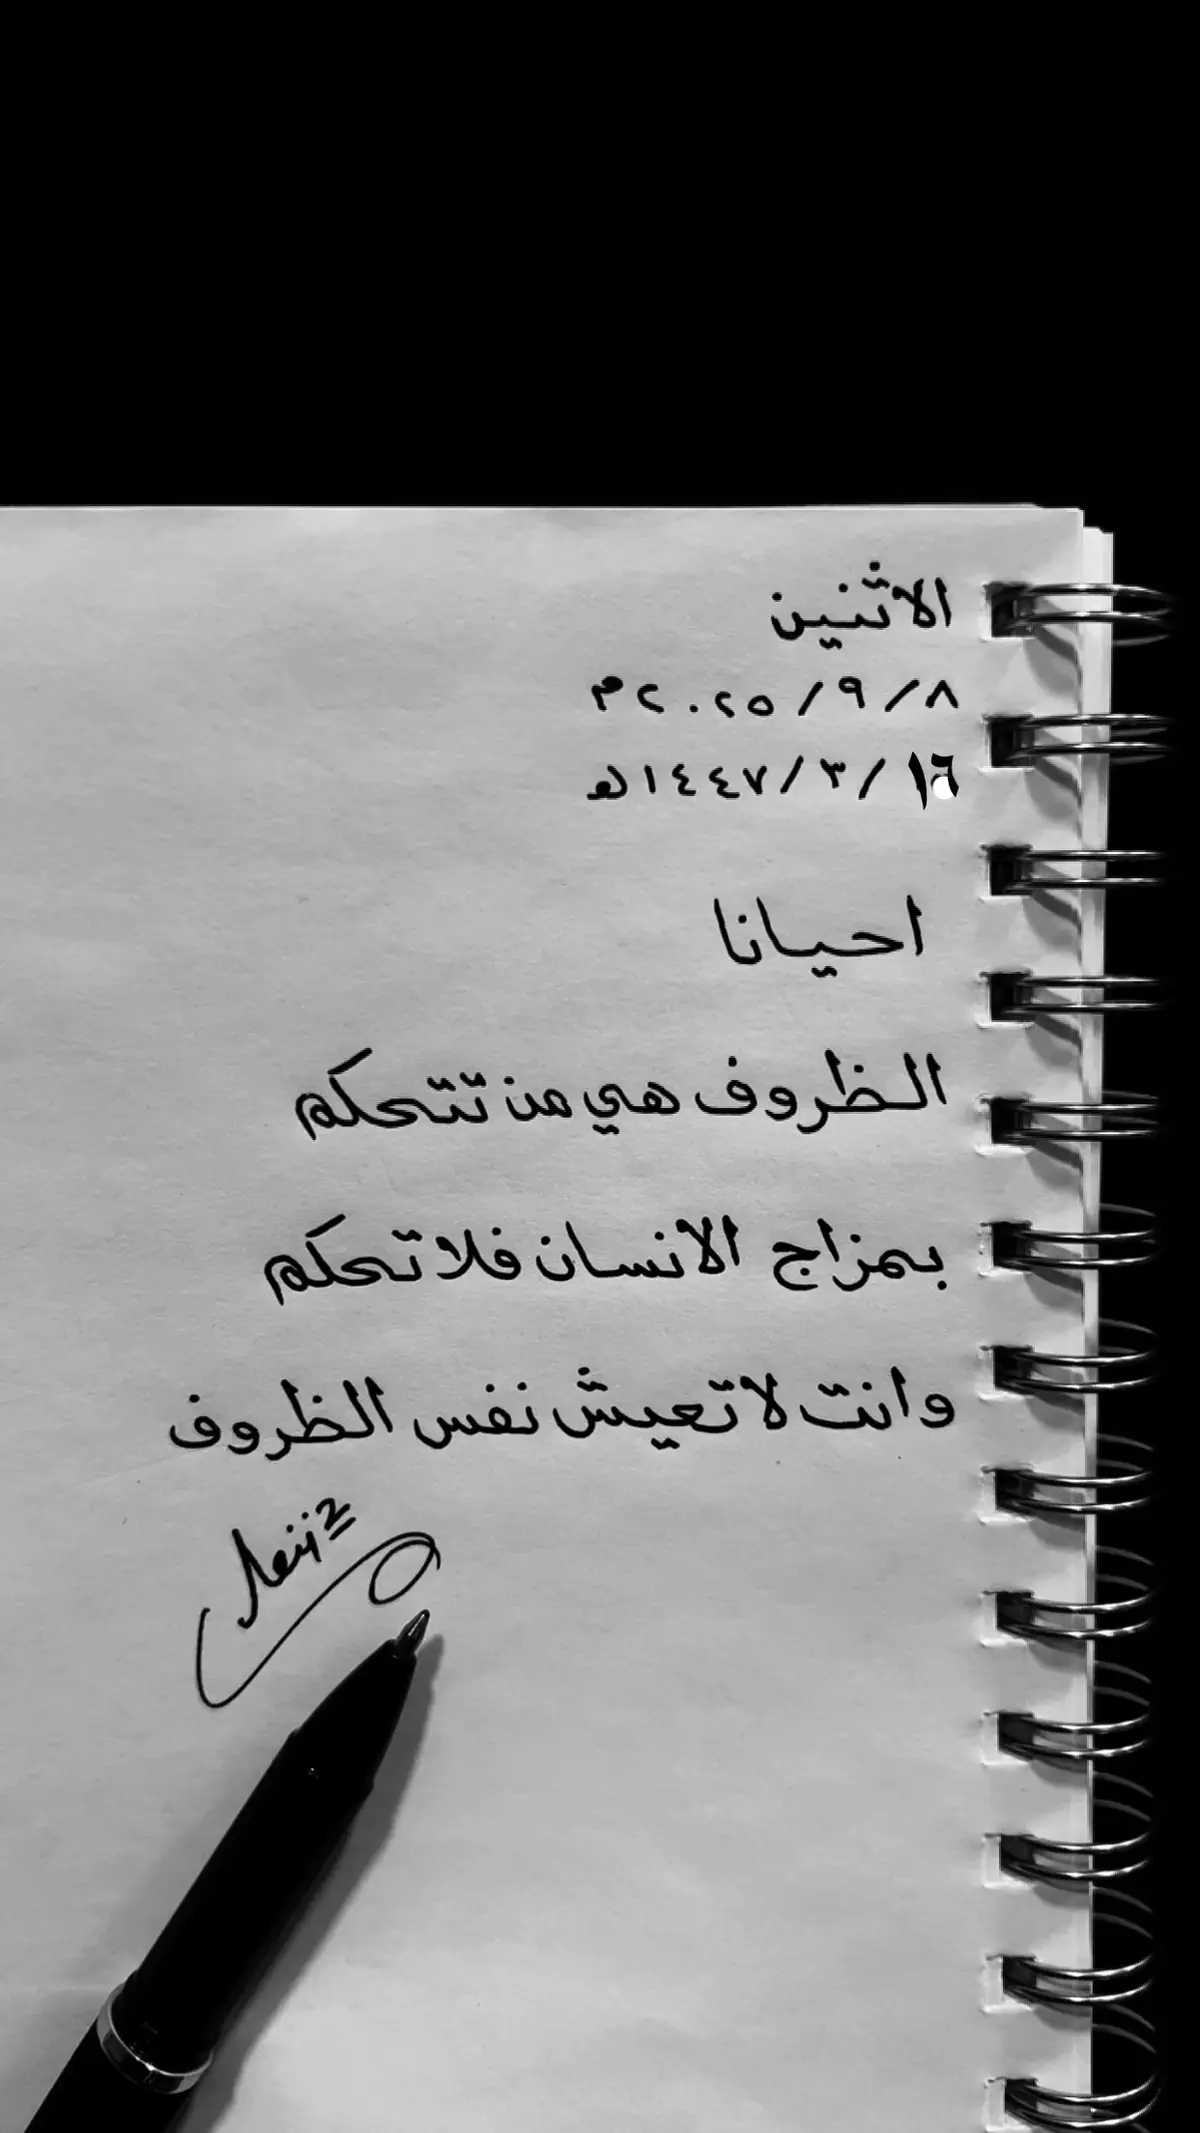 الاثنين
٨/٩/٢٠٢٥م
١٦/٣/١٤٤٧هـ
احيانا
الظروف هي من تتحكم
بمزاج الانسان فلا تحكم
وانت لا تعيش نفس الظروف